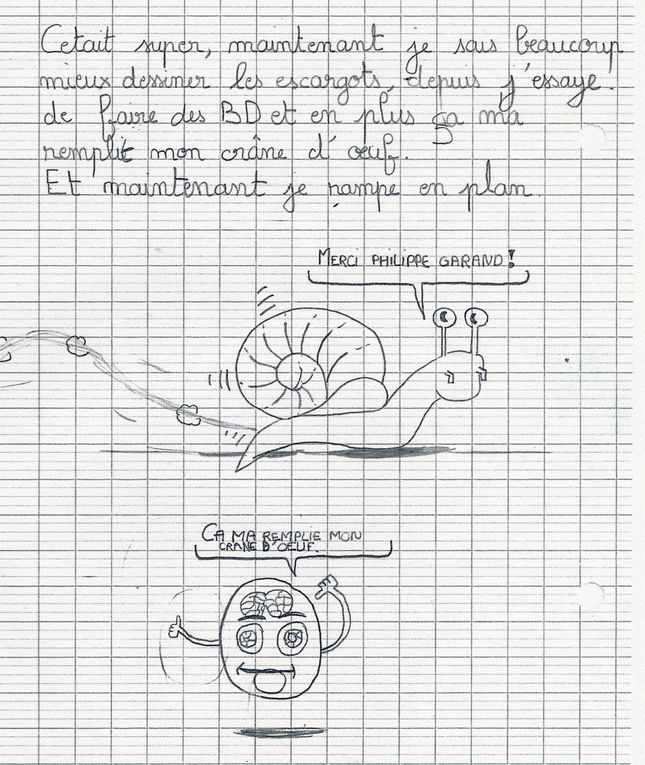 Cetait super, maintenant je sais beaucoup
mieux dessiner les escargots, depuis j'essaye.
de faire des BD et en plus ça ma
remplit mon crâne d'œuf.
Et maintenant je rampe en plan.
MERCI PHILIPPE GARAND !
CA MA REMPLIE MON
CRANE D'OEUF.